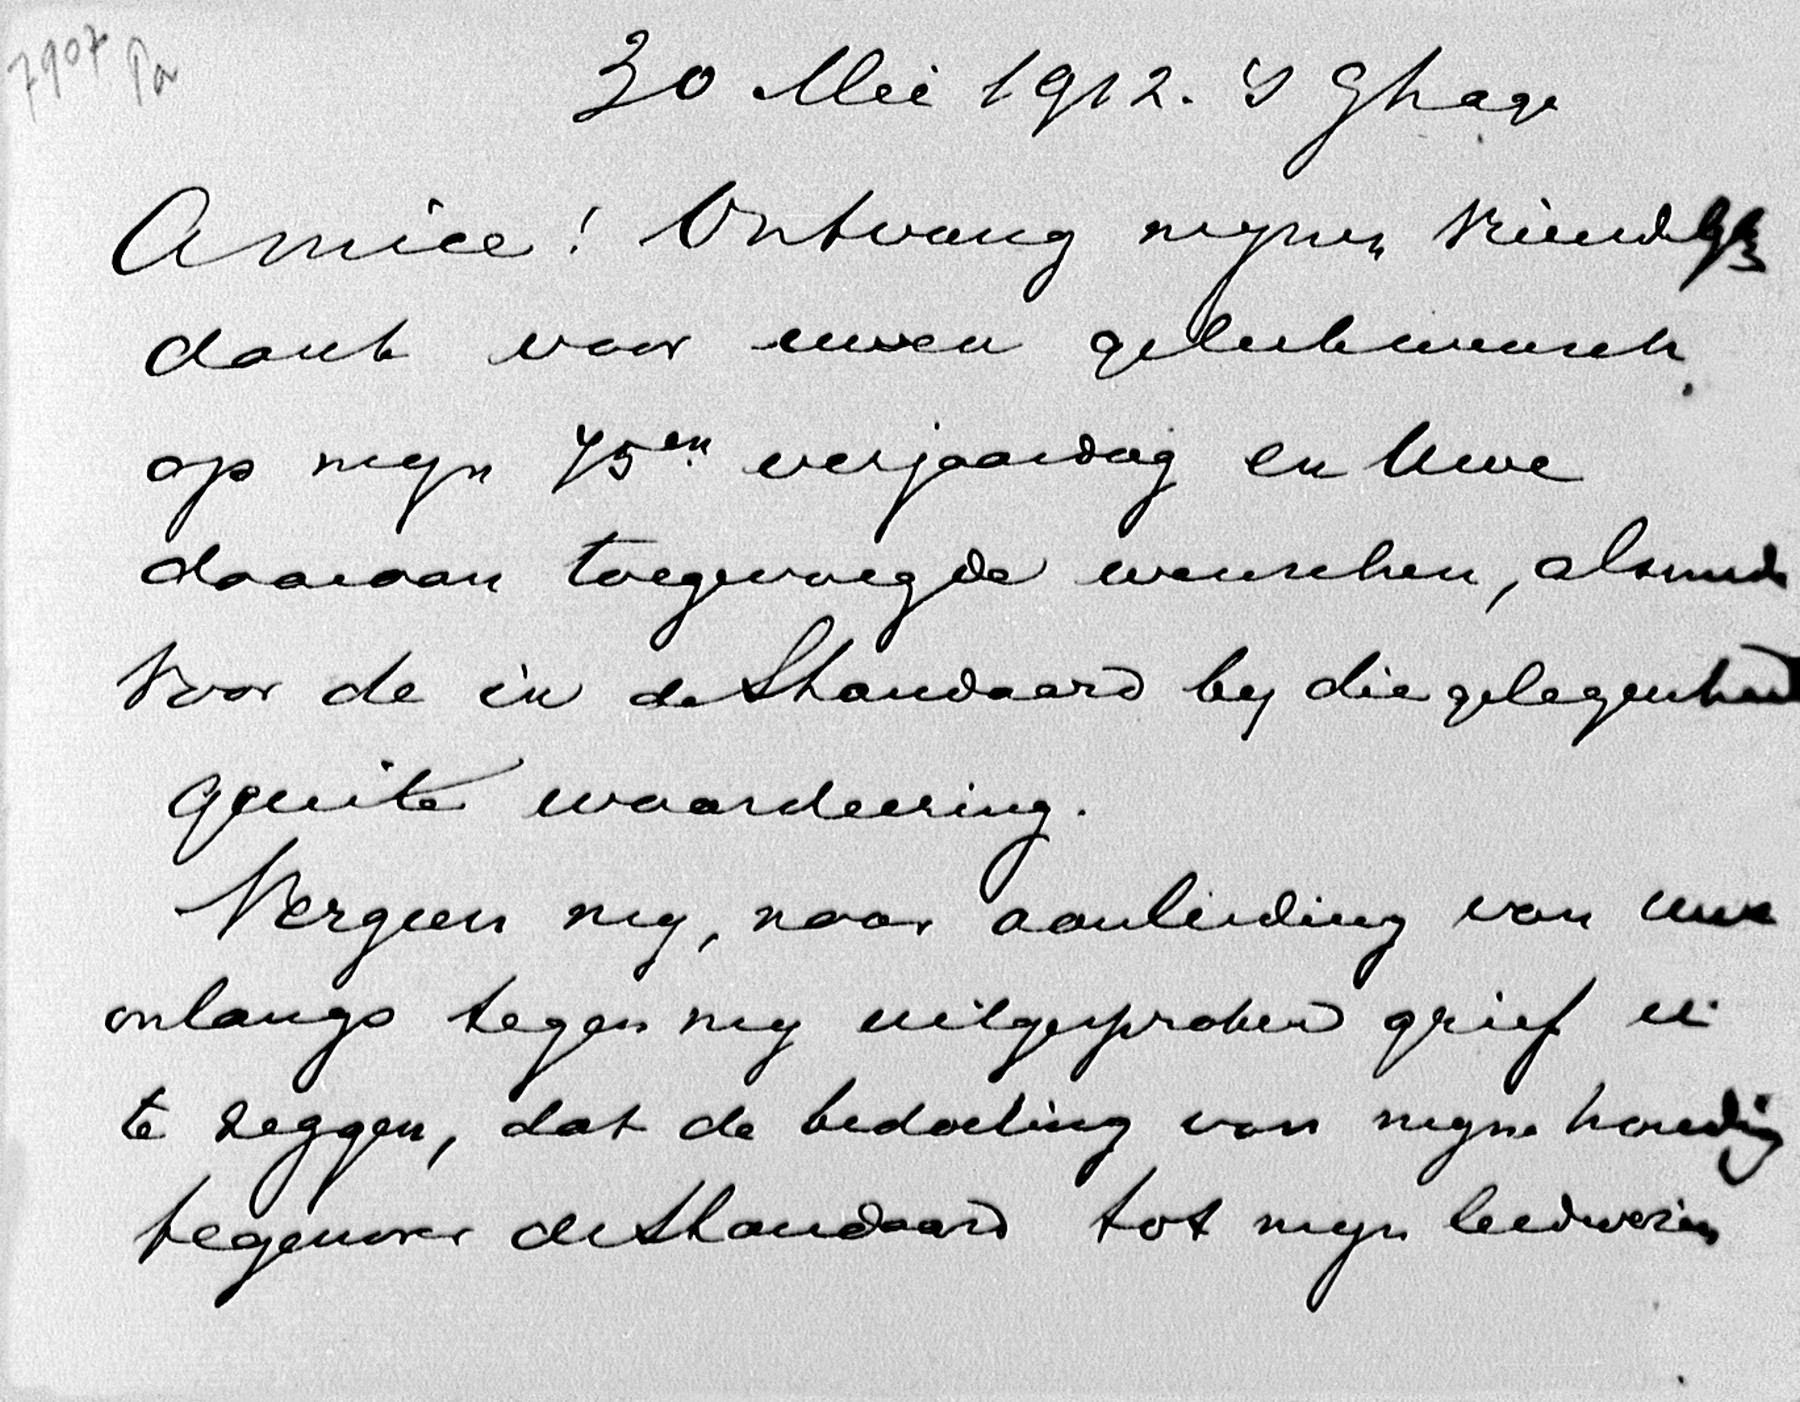 7907
Pa
30 Mei 1912. 's Ghage
Amice! Ontvang mijnen vriendlijk
dank voor uwen gelukwensch
op mijn 75en verjaardag en Uwe
daaraan toegevoegde wenschen, alsmede
voor de in de Standaard bij die gelegenheid
geuite waardeering.
Vergun mij, naar aanleiding van uwe
onlangs tegen mij uitgesproken grief u
te zeggen, dat de bedoeling van mijne houding
tegenover de Standaard tot mijn leedwezen